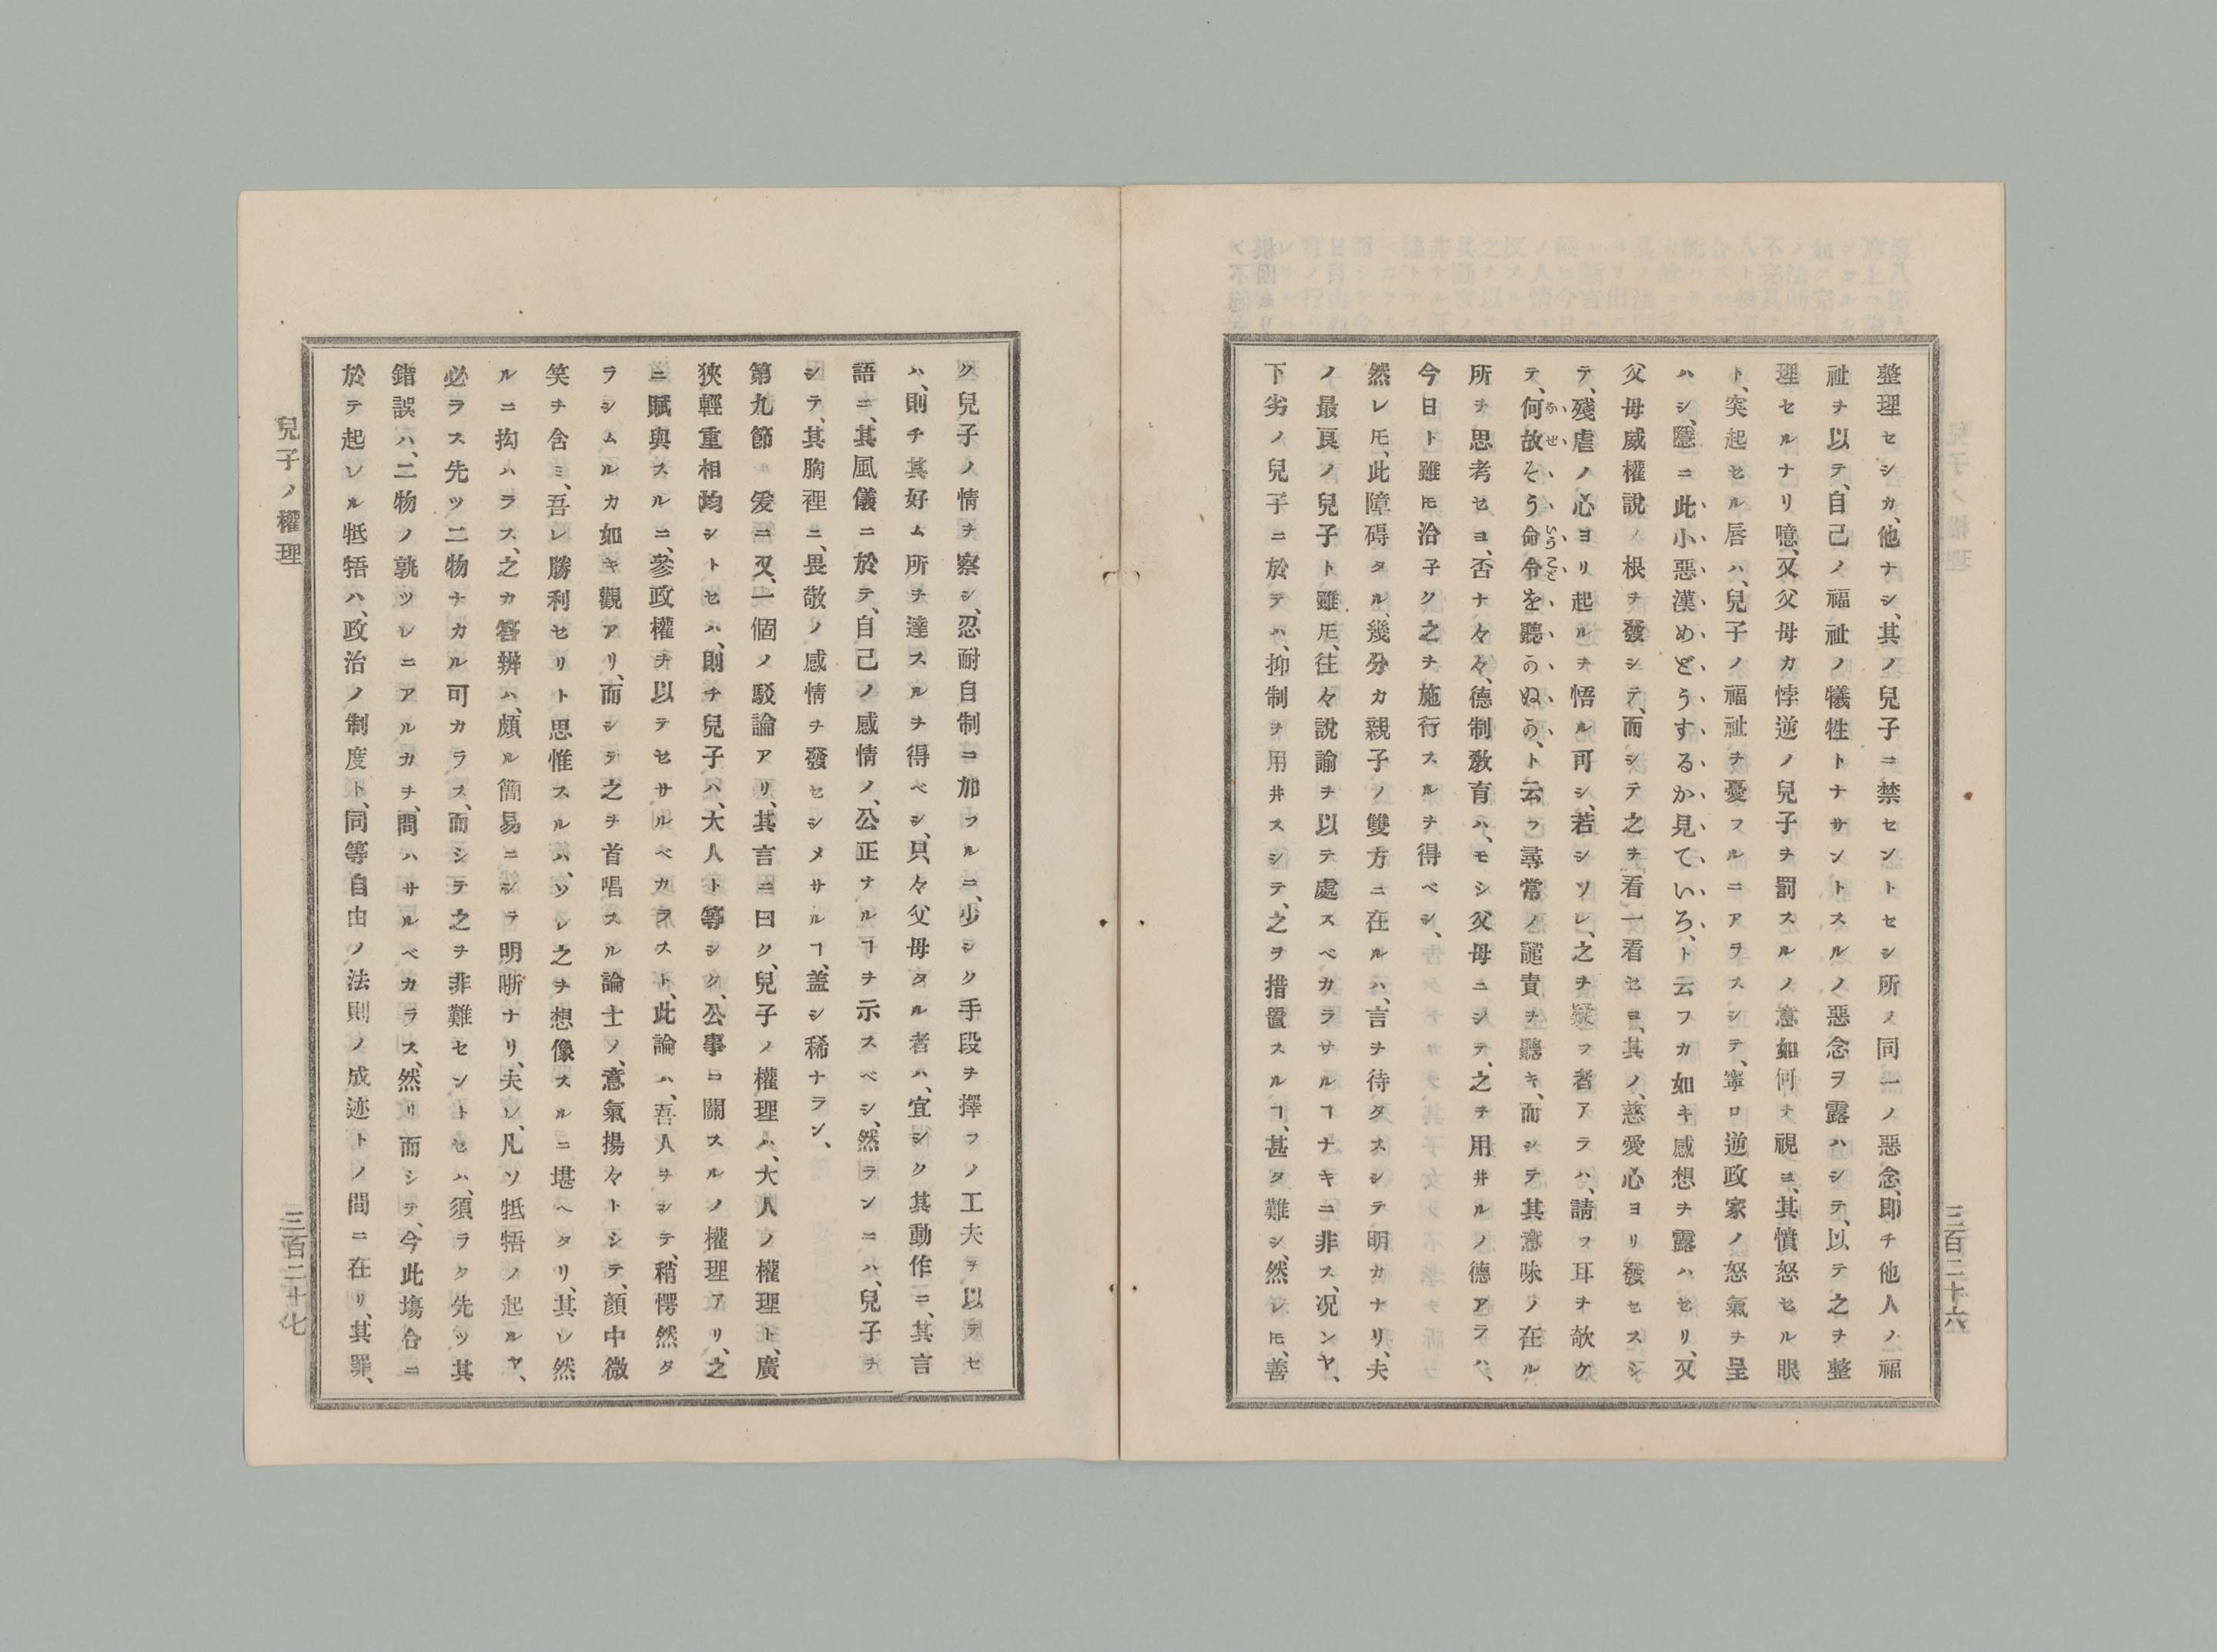 三百二十六
整理セシカ、他ナシ、其ノ兒子ニ禁セントセシ所ノ同一ノ惡念、即チ他人ノ福
祉ヲ以テ、自己ノ福祉ノ犠牲トナサントスルノ惡念ヲ露ハシテ、以テ之ヲ整
理セルナリ噫、又父母カ悖逆ノ兒子ヲ罰スルノ意如何ヲ視ヨ、其憤怒セル眼
ト、突起セル唇ハ、兒子ノ福祉ヲ憂フルニアラスシテ、寧ロ逆政家ノ怒氣ヲ呈
ハシ、隱ニ此小惡漢めどうするか見ていろ、ト云フカ如キ感想ヲ露ハセリ、又
父母威權說ノ根ヲ發シテ、而シテ之ヲ看一看セヨ、其ノ慈愛心ヨリ發セスシ
テ、殘虐ノ心ヨリ起ルヲ悟ル可シ、若シソレ、之ヲ疑フ者アラハ、請フ耳ヲ欹ケ
テ、何故そう命令を聽かぬか、ト云フ尋常ノ譴責ヲ聽キ、而シテ其意味ノ在ル
所ヲ思考セヨ、否ナ々々、德制敎育ハ、モシ父母ニシテ、之ヲ用井ルノ德アラハ、
今日ト雖モ洽子ク之ヲ施行スルヲ得ベシ、
然レ𪜈、此障碍タル、幾分カ親子ノ雙方ニ在ルハ、言ヲ待タスシテ明カナリ、夫
ノ最良ノ兒子ト雖𪜈、往々說諭ヲ以テ處スベカラサルヿナキニ非ス、况ンヤ、
下劣ノ兒子ニ於テハ、抑制ヲ用井スシテ、之ヲ措置スルヿ、甚タ難シ、然レ𪜈、善
ク兒子ノ情ヲ察シ、忍耐自制ニ加フルニ、少シク手段ヲ擇フノ工夫ヲ以テセ
ハ、則チ其好ム所ヲ達スルヲ得ベシ、只々父母タル者ハ、宜シク其動作ニ、其言
語ニ、其風儀ニ於テ、自己ノ感情ノ、公正ナルヿヲ示スベシ、然ランニハ、兒子ヲ
シテ、其胸裡ニ、畏敬ノ感情ヲ發セシメサルヿ、蓋シ稀ナラン、
第九節 爰ニ又、一個ノ駁論アリ、其言ニ曰ク、兒子ノ權理ハ、大人ノ權理ト、廣
狹輕重相均シトセハ、則チ兒子ハ、大人ト等シク、公事ニ關スルノ權理アリ、之
ニ賦與スルニ、參政權ヲ以テセサルベカラスト、此論ハ、吾人ヲシテ、稍愕然タ
ラシムルカ如キ觀アリ、而シテ之ヲ首唱スル論士ノ、意氣揚々トシテ、顏中微
笑ヲ含ミ、吾レ勝利セリト思惟スルハ、ソレ之ヲ想像スルニ堪ヘタリ、其レ然
ルニ拘ハラス、之カ答辨ハ、頗ル簡易ニシテ明晣ナリ、夫レ、凡ソ牴牾ノ起ルヤ、
必ラス先ツ二物ナカル可カラス、而シテ之ヲ非難セントセハ、須ラク先ツ其
錯誤ハ、二物ノ孰ツレニアルカヲ、問ハサルベカラス、然リ而シテ、今此塲合ニ
於テ起レル牴牾ハ、政治ノ制度ト、同等自由ノ法則ノ成迹トノ間ニ在リ、其罪、
兒子ノ權理
三百二十七